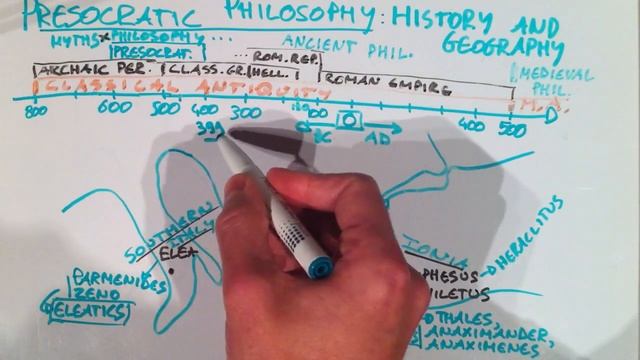 PRESOCRATIC PHILOSOPHY: HISTORY AND
GEOGRAPHY
MYTHS PHILOSOPHY ...
PRESOCRAT.
... ROM. REP.
ANCIENT PHIL.
ARCHAIC PER. CLASS. GR. HELL.
ROMAN EMPIRE
MEDIEVAL
PHIL.
CLASSICAL ANTIQUITY
M.A.
800 600 500 400 300 100 0 400 500
BC AD
399
SOUTHERN
ITALY
ELEA
PARMENIDES
ZENO
ELEATICS
IONIA
PHESUS HERACLITUS
ILETUS
THALES,
ANAXIMANDER,
ANAXIMENES